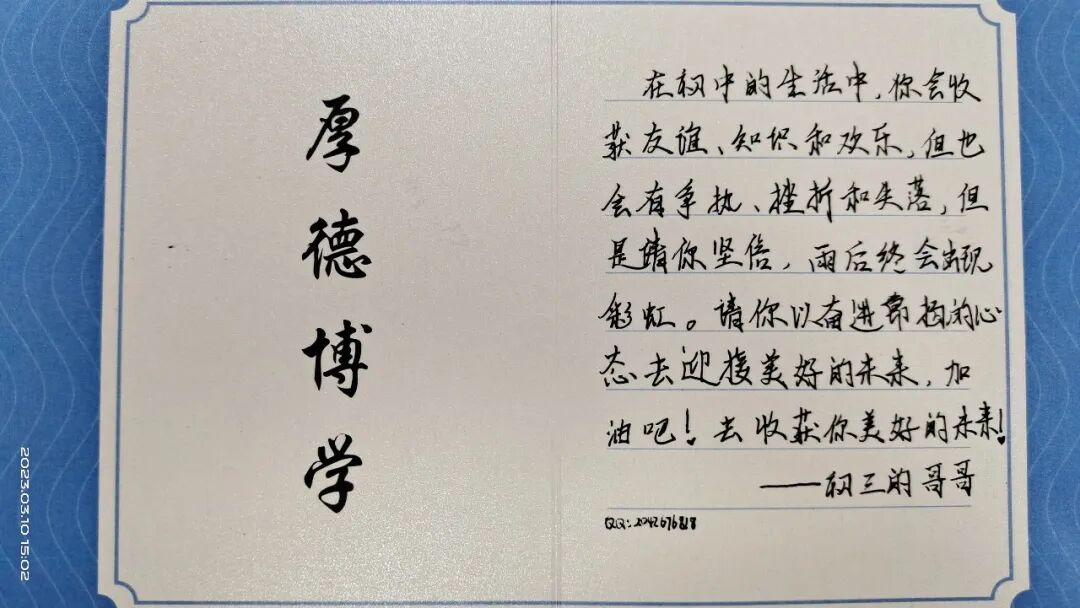 厚
德
博
学
在初中的生活中，你会收
获友谊、知识和欢乐，但也
会有争执、挫折和失落，但
是请你坚信，雨后终会出现
彩虹。请你以奋进昂扬的心
态去迎接美好的未来，加
油吧！去收获你美好的未来！
——初三的哥哥
QQ：2042676818
2023.03.10 15:02